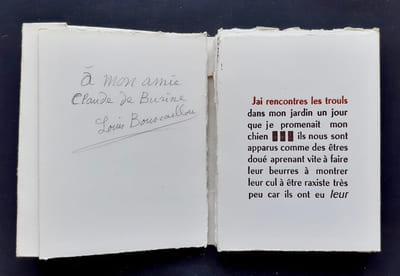 à mon amie
Claude de Burine
Louis Bouscaillou
Jai rencontres les trouls
dans mon jardin un jour
que je promenait mon
chien ils nous sont
apparus comme des êtres
doué aprenant vite à faire
leur beurres à montrer
leur cul à être raxiste très
peu car ils ont eu leur